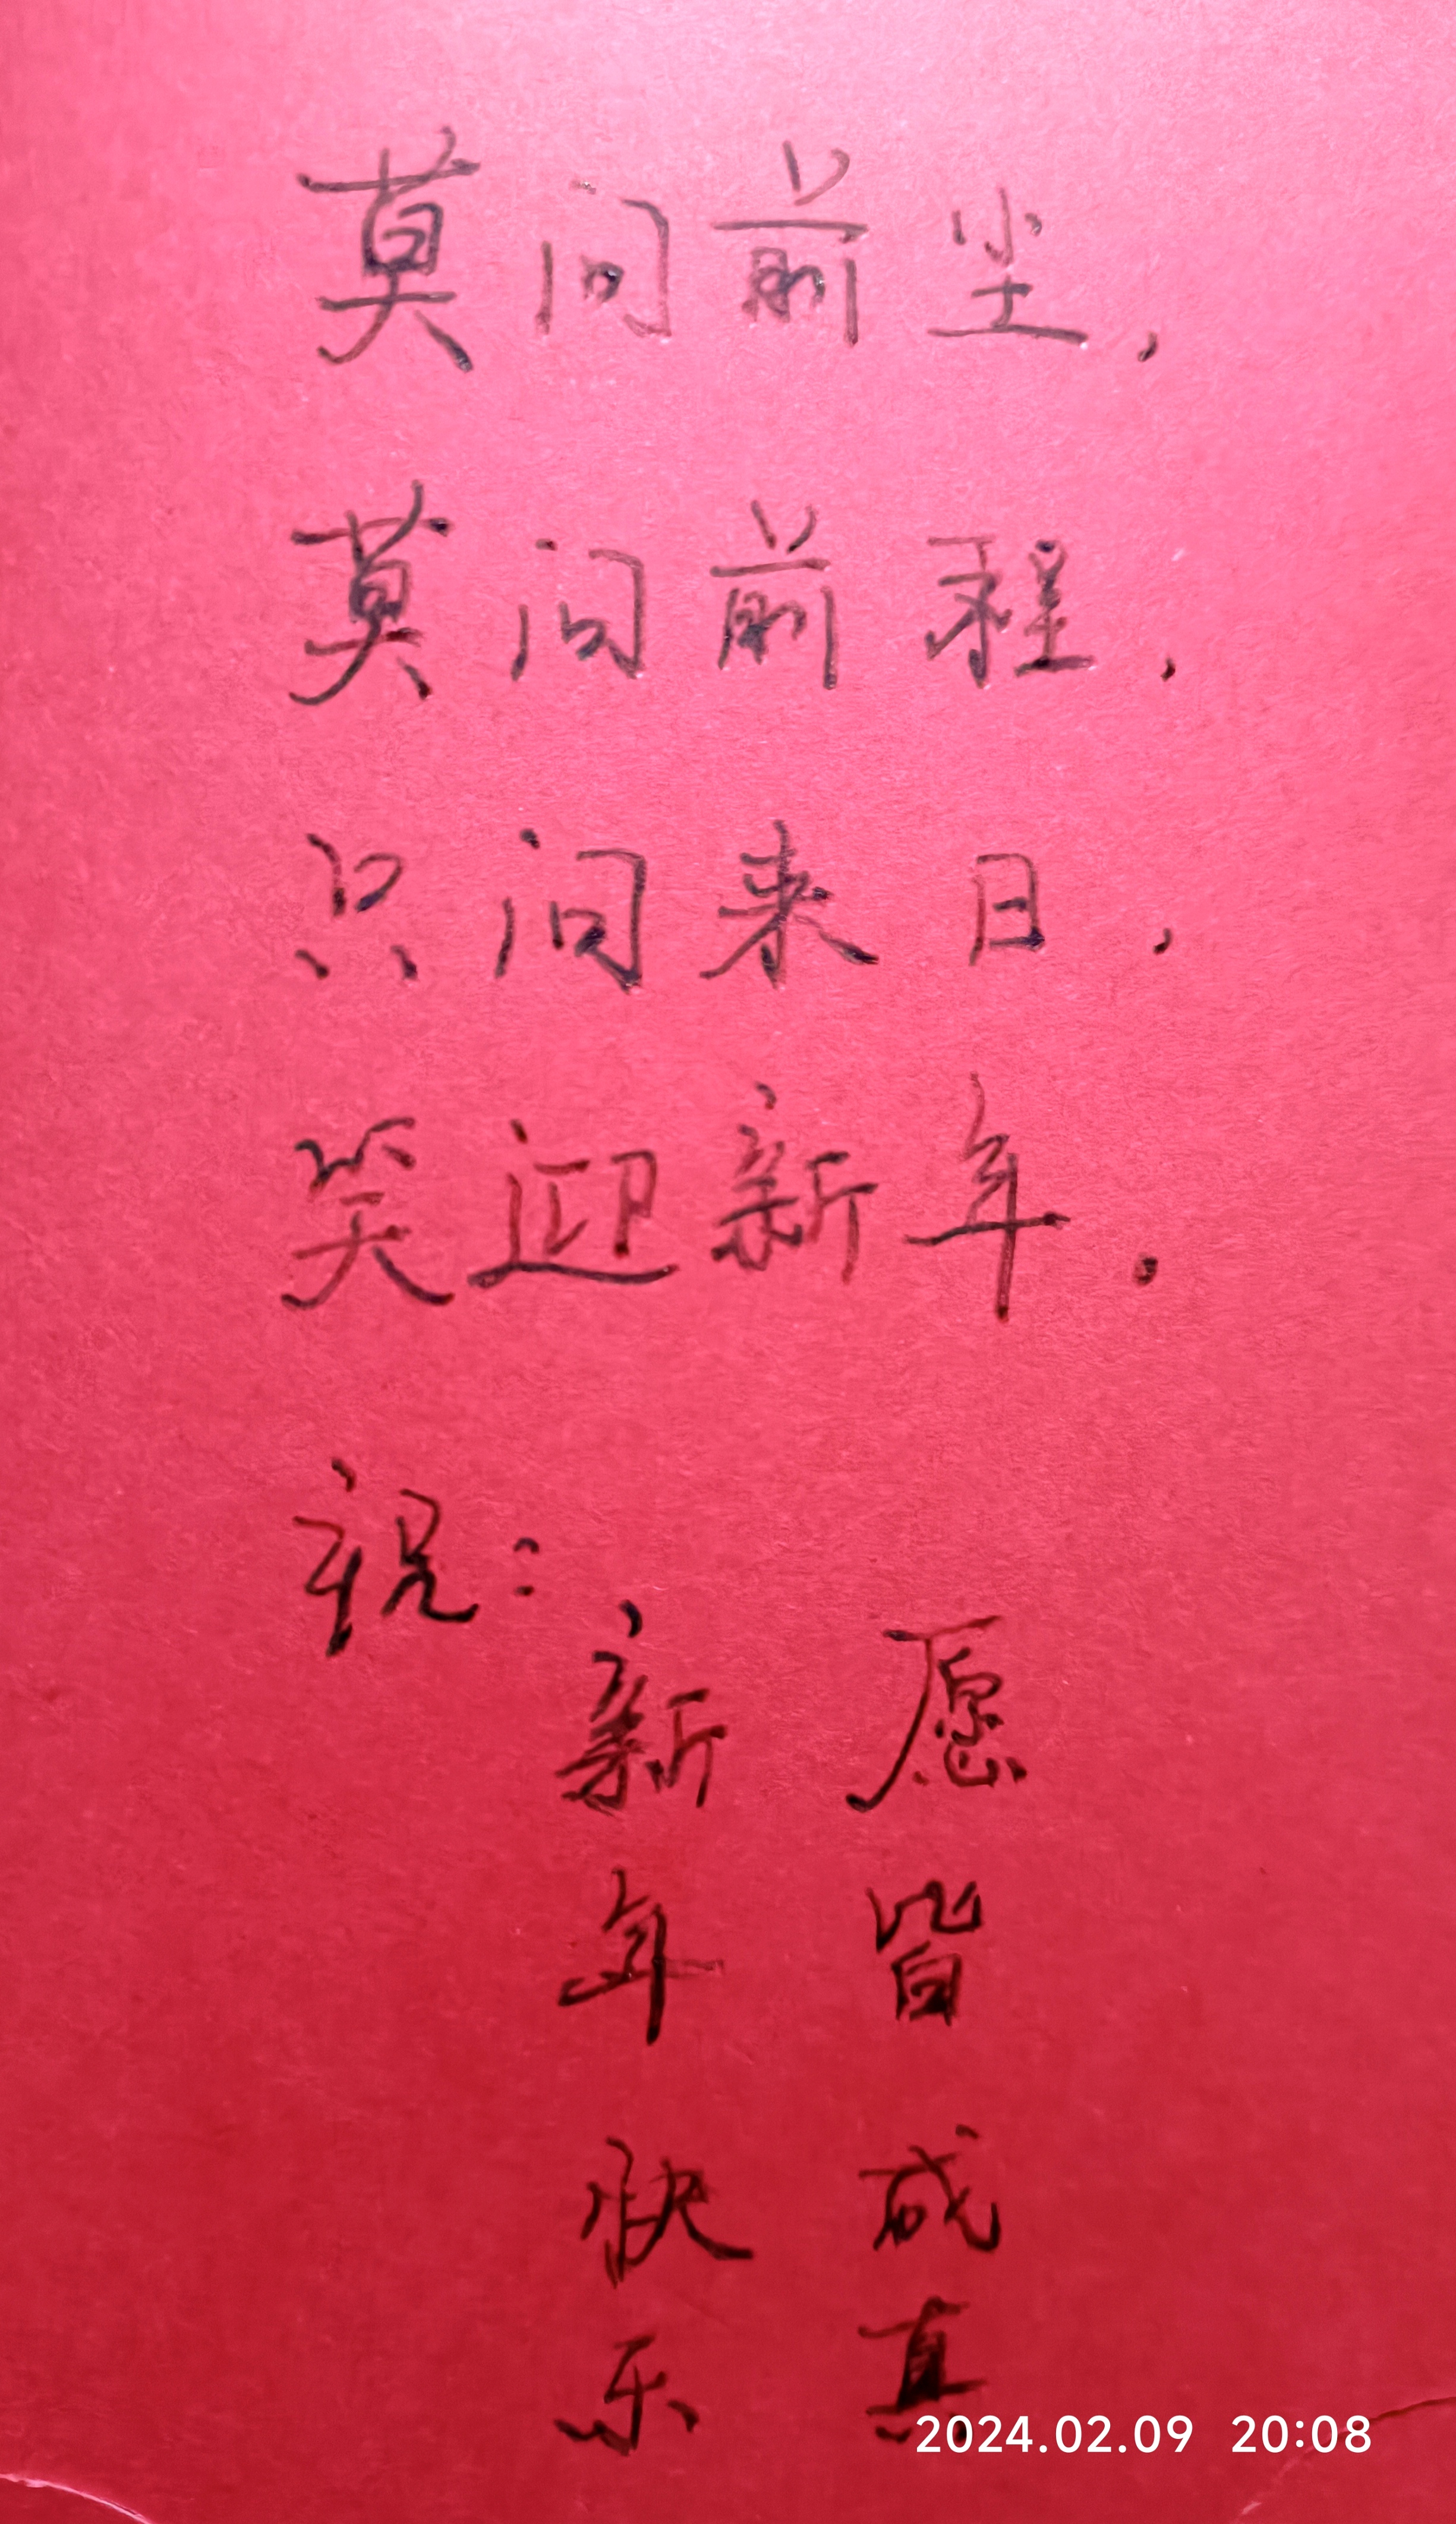 莫问前尘，
莫问前程，
只问来日，
笑迎新年。
祝：
新年快乐
愿皆成真
2024.02.09 20:08